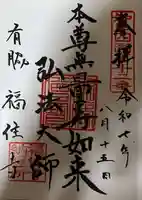 奉拝
令和七年
八月十五日
本尊無量寿如来
弘法大師
有脇 福住寺